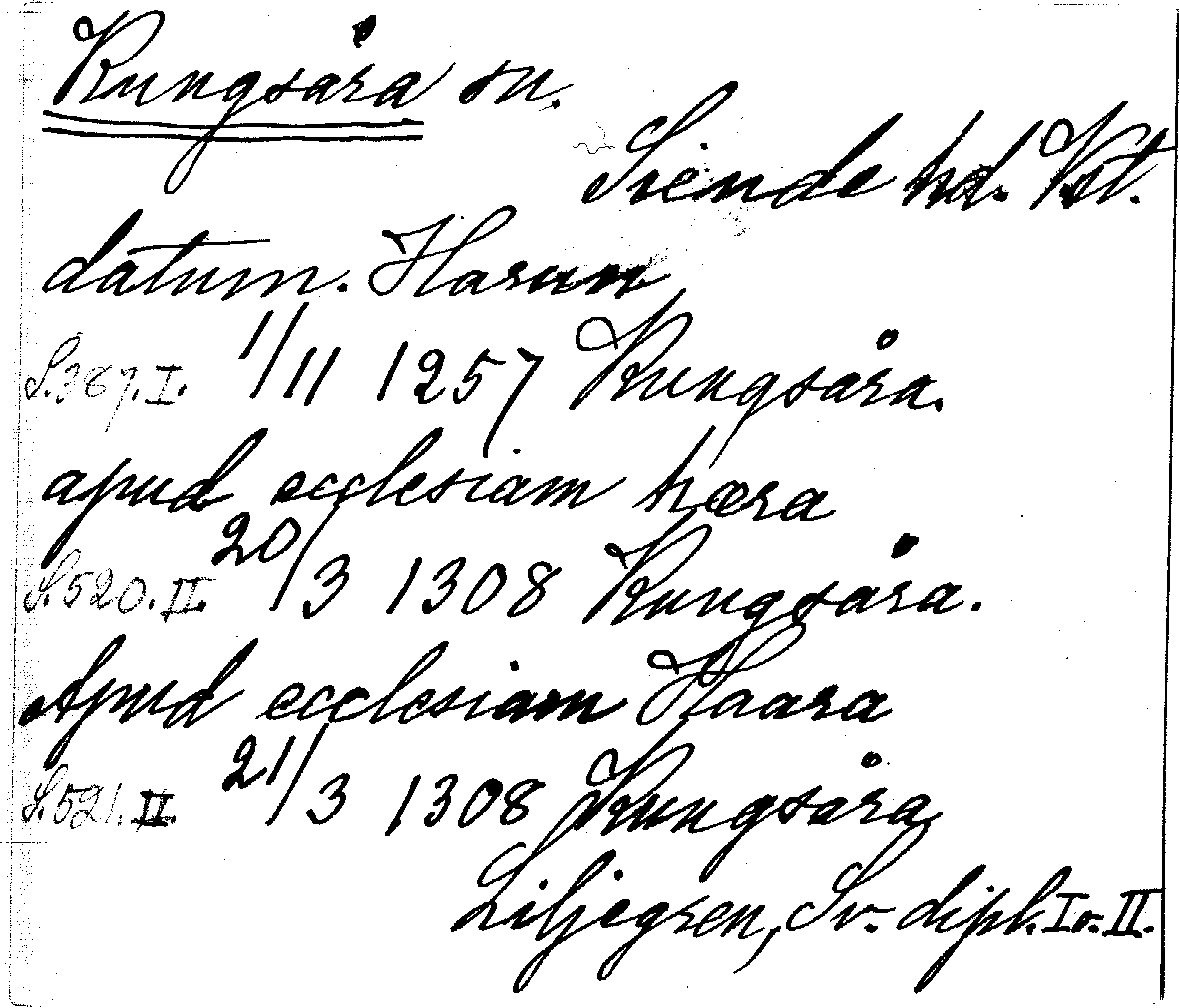 Kungsåra sn.
Siende hd. Vstl.
datum. Harum
S.387.I. 1/11 1257 Kungsåra.
apud ecclesiam hæra
S.520.II. 20/3 1308 Kungsåra.
Apud ecclesiam Haara
S.521.II. 21/3 1308 Kungsåra,
Liljegren, Sv. dipl. I o. II.